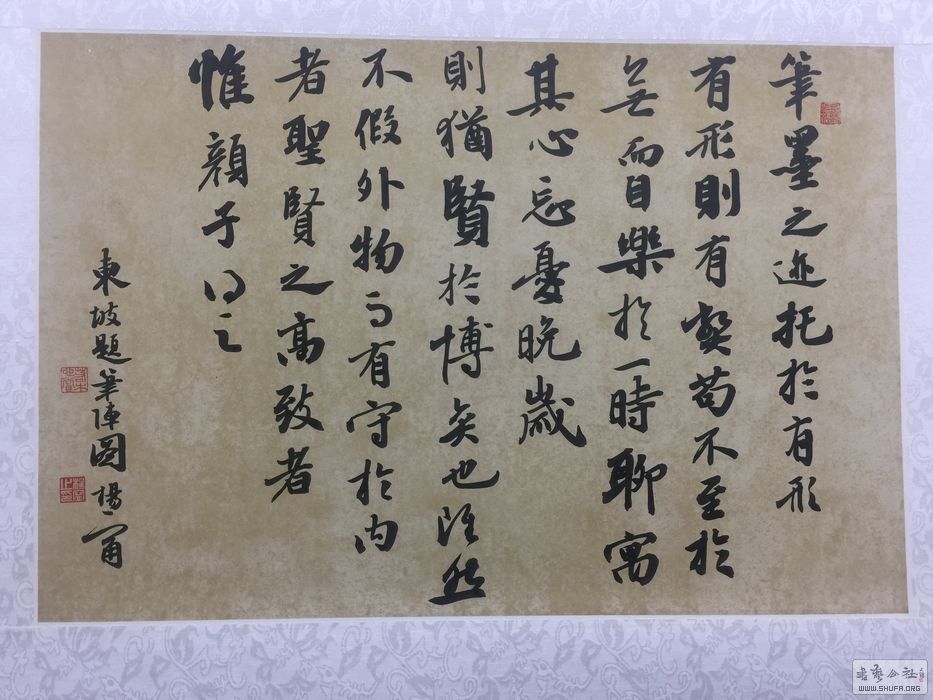 筆墨之迹托於有形
有形則有獘苟不至於
無而自樂於一時聊寓
其心忘憂晚歲
則猶賢於博奕也雖然
不假外物而有守於内
者聖賢之高致者
惟顔子得之
東坡題筆陣圖 楊一甯
WWW.SHUFA.ORG